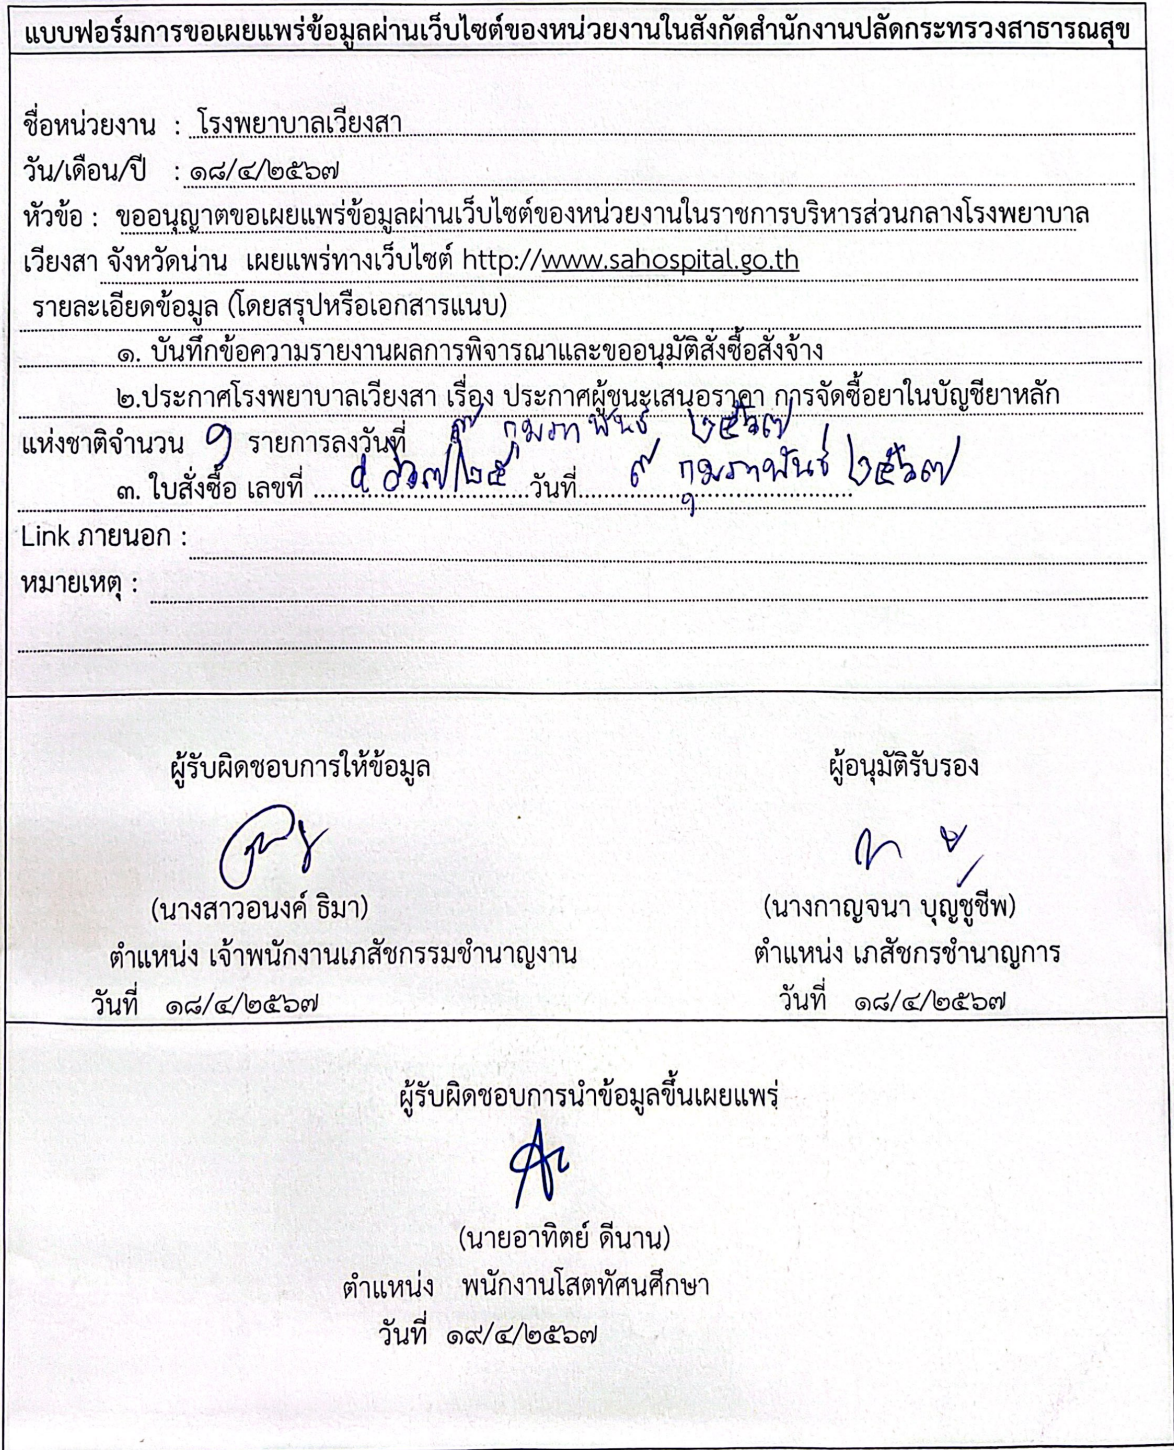 แบบฟอร์มการขอเผยแพร่ข้อมูลผ่านเว็บไซต์ของหน่วยงานในสังกัดสำนักงานปลัดกระทรวงสาธารณสุข
ชื่อหน่วยงาน : โรงพยาบาลเวียงสา
วัน/เดือน/ปี : ๑๘/๔/๒๕๖๗
หัวข้อ : ขออนุญาตขอเผยแพร่ข้อมูลผ่านเว็บไซต์ของหน่วยงานในราชการบริหารส่วนกลางโรงพยาบาล
เวียงสา จังหวัดน่าน เผยแพร่ทางเว็บไซต์ http://www.sahospital.go.th
รายละเอียดข้อมูล (โดยสรุปหรือเอกสารแนบ)
๑. บันทึกข้อความรายงานผลการพิจารณาและขออนุมัติสั่งซื้อสั่งจ้าง
๒.ประกาศโรงพยาบาลเวียงสา เรื่อง ประกาศผู้ชนะเสนอราคา การจัดซื้อยาในบัญชียาหลัก
แห่งชาติจำนวน ๑ รายการลงวันที่ ๙ กุมภาพันธ์ ๒๕๖๗
๓. ใบสั่งซื้อ เลขที่ ....................วันที่ ๙ กุมภาพันธ์ ๒๕๖๗
Link ภายนอก :
หมายเหตุ :
ผู้รับผิดชอบการให้ข้อมูล
(นางสาวอนงค์ ธิมา)
ตำแหน่ง เจ้าพนักงานเภสัชกรรมชำนาญงาน
วันที่ ๑๘/๔/๒๕๖๗
ผู้อนุมัติรับรอง
(นางกาญจนา บุญชูชีพ)
ตำแหน่ง เภสัชกรชำนาญการ
วันที่ ๑๘/๔/๒๕๖๗
ผู้รับผิดชอบการนำข้อมูลขึ้นเผยแพร่
(นายอาทิตย์ ดีนาน)
ตำแหน่ง พนักงานโสตทัศนศึกษา
วันที่ ๑๙/๔/๒๕๖๗